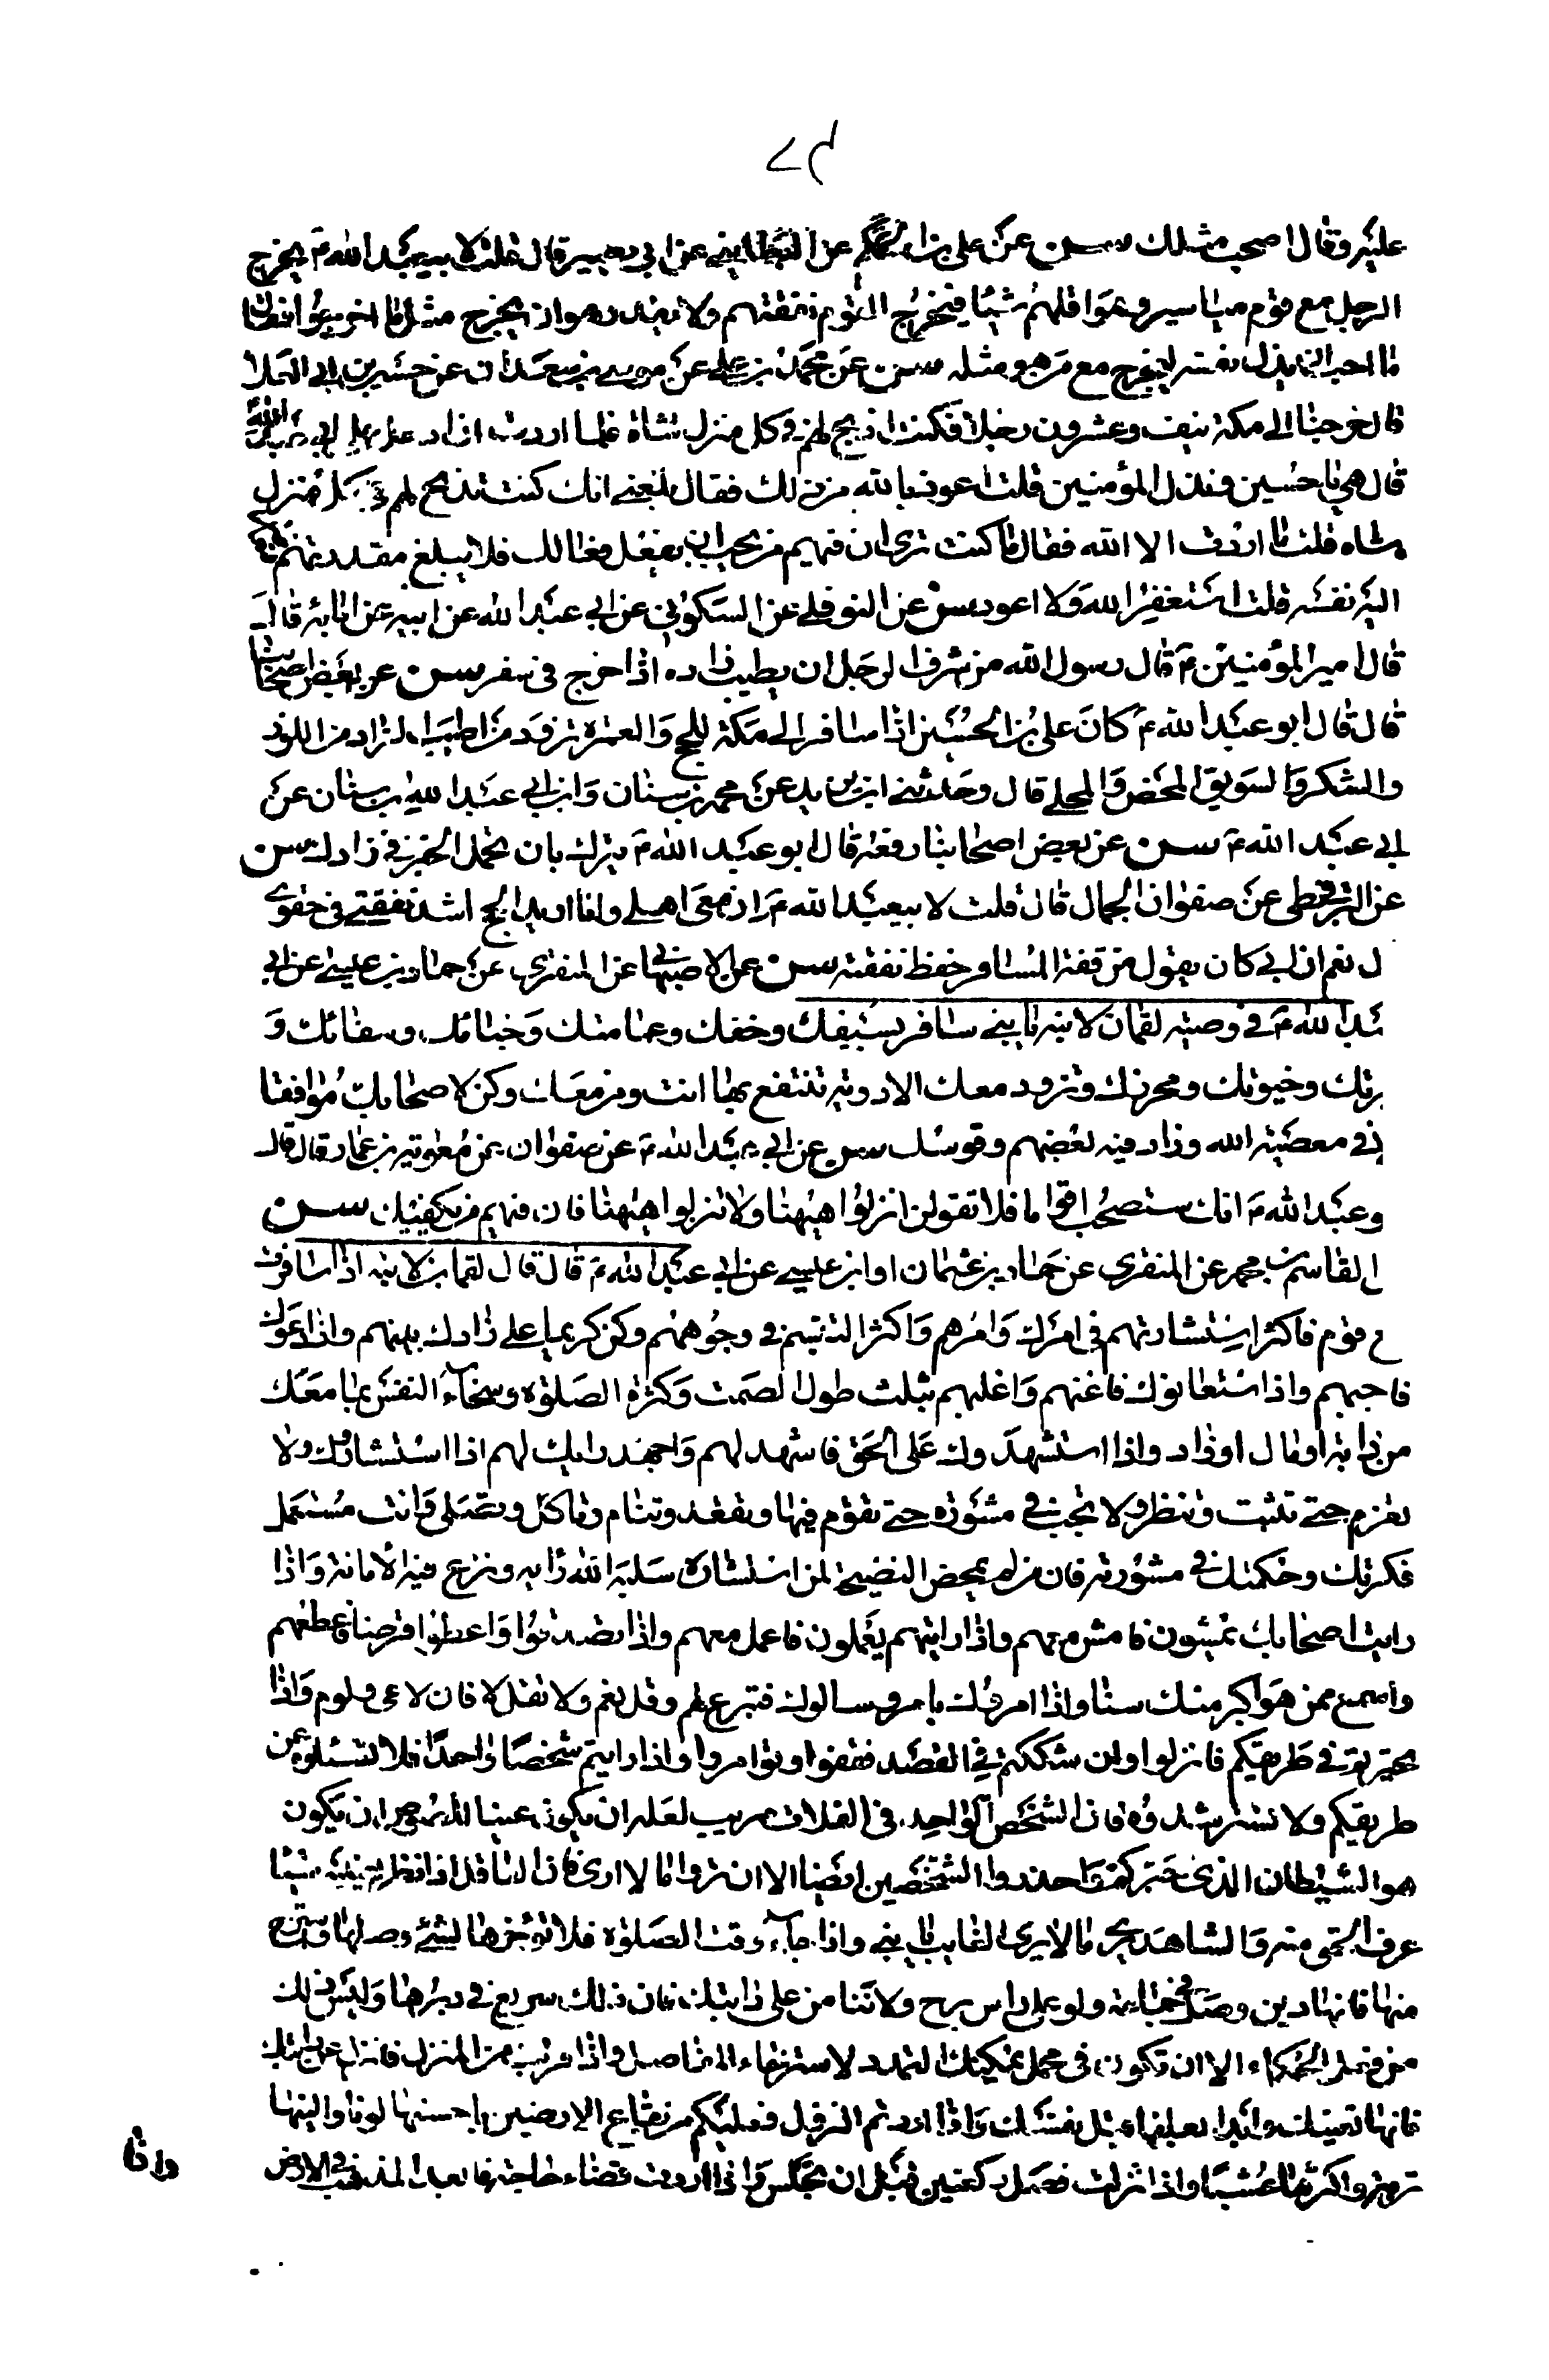 عليه وقال اصحب مثلك سن عن علي بن الحكم عن البطايني عن ابي بصير قال قلت لابيعبد الله ع يخرج
الرجل مع قوم مياسير وهو اقلهم شيئا فيخرج القوم نفقتهم ولا يقدر هو ان يخرج مثل ما اخرجوا فقال
ما احب ان يذل نفسه ليخرج مع من هو مثله سن عن محمد بن علي عن موسى بن سعدان عن حسين بن ابي العلا
قال خرجنا الى مكة نيف وعشرون رجلا فكنت اذبح لهم في كل منزل شاة فلما اردت ان ادخل على ابي عبد الله
قال هي يا حسين وتذل المؤمنين قلت اعوذ بالله من ذلك فقال بلغني انك كنت تذبح لهم في كل منزل
شاه قلت ما اردت الا الله فقال ما كنت ترى ان فيهم من يحب ان يفعل فعالك فلا يبلغ مقدرتهم
اليه نفسه قلت استغفر الله ولا اعود سن عن النوفلي عن السكوني عن ابي عبد الله عن ابيه عن ابائه قال
قال امير المؤمنين ع قال رسول الله من شرف الرجل ان يطيب زاده اذا خرج في سفر سن عن بعض اصحابنا
قال قال ابو عبد الله ع كان علي بن الحسين اذا سافر الى مكة للحج والعمرة تزود من اطيب الزاد من اللوز
والسكر والسويق المحمض والمحلى قال وحدثني ابن يزيد عن محمد بن سنان وابن ابي عبد الله بن سنان عن
ابي عبد الله ع سن عن بعض اصحابنا رفعه قال ابو عبد الله ع تبرك بان تحمل الخبز في زادك سن
عن البزنطي عن صفوان الجمال قال قلت لابيعبد الله ع ان معي اهلي وانا اريد الحج اشد نفقتي في حقوي
ل نعم ان ابي كان يقول من قفة المسافر حفظ نفقته سن عن الاصبهاني عن المنقري عن حماد بن عيسى عن ابي
عبد الله ع في وصية لقمان لابنه يا بني سافر بسيفك وخفك وعمامتك وخبائك وسقائك و
برتك وخيوطك ومخرزك وتزود معك الادوية تنتفع بها انت ومن معك وكن لاصحابك موافقا
في معصية الله وزاد فيه بعضهم وقوسك سن عن ابي عبد الله ع عن صفوان عن معوية بن عمار قال قال
و عبد الله ع انك ستصحب اقواما فلا تقولن انزلوا هيهنا ولا تنزلوا هيهنا فان فيهم من يكفيك سن
القاسم بن محمد عن المنقري عن حماد بن عثمان او ابن عيسى عن ابي عبد الله ع قال قال لقمان لابنه اذا سافرت
ع قوم فاكثر استشارتهم في امرك وامرهم واكثر التبسم في وجوههم وكن كريما على زادك بينهم واذا دعوك
فاجبهم واذا استعانوك فاعنهم واغلبهم بثلث طول الصمت وكثرة الصلوة وسخاء النفس بما معك
من دابة او مال او زاد واذا استشهدوك على الحق فاشهد لهم واجهد رايك لهم اذا استشاروك ولا
تعزم حتى تثبت وتنظر ولا تجب في مشورة حتى تقوم فيها وتقعد وتنام وتاكل وتصلي وانت مستعمل
فكرتك وحكمتك في مشورته فان من لم يمحض النصيحة لمن استشاره سلبه الله رايه ونزع منه الامانة واذا
رايت اصحابك يمشون فامش معهم واذا رايتهم يعملون فاعمل معهم واذا تصدقوا واعطوا قرضا فاعط معهم
واسمع ممن هو اكبر منك سنا واذا امروك بامر وسالوك فتبرع لهم وقل نعم ولا تقل لا فان لا عي ولوم واذا
تحيرتم في طريقكم فانزلوا وان شككتم في القصد فقفوا وتوامروا واذا رايتم شخصا واحدا فلا تسئلوه عن
طريقكم ولا تسترشدوه فان الشخص الواحد في الفلات مريب لعله ان يكون عينا للصوص او ان يكون
هو الشيطان الذي حيركم واحذروا الشخصين ايضا الا ان تروا ما لا ارى فان العاقل اذا نظر بعينيه شيئا
عرف الحق منه والشاهد يرى ما لا يرى الغايب يا بني واذا جاء وقت الصلوة فلا تؤخرها لشئ وصلها واسترح
منها فانها دين وصل في جماعة ولو على راس زج ولا تنامن على دابتك فان ذلك سريع في دبرها وليس ذلك
من فعل الحكماء الا ان تكون في محمل يمكنك التمدد لاسترخاء المفاصل واذا قربت من المنزل فانزل عن دابتك
فانها تعينك وابدا بعلفها قبل نفسك واذا اردتم النزول فعليكم من بقاع الارضين باحسنها لونا والينها
تربة واكثرها عشبا واذا نزلت فصل ركعتين قبل ان تجلس واذا اردت قضاء حاجة فابعد المذهب في الارض
واذا